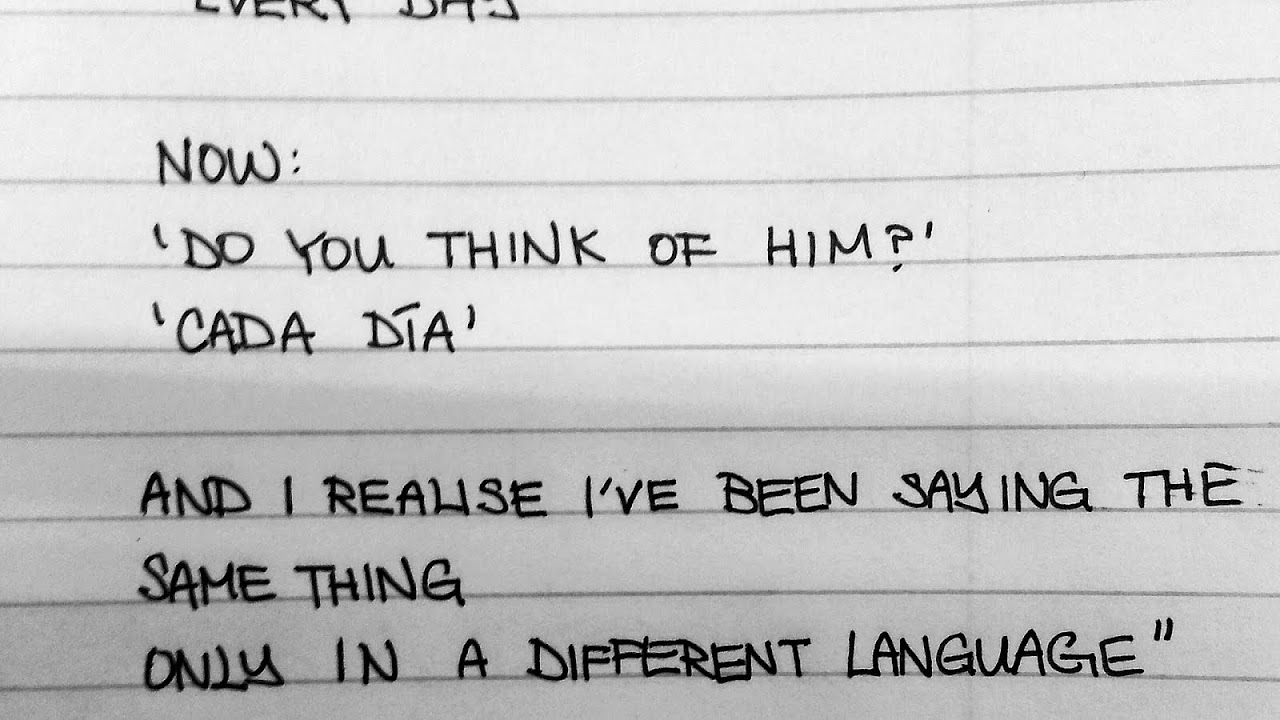 EVERY DAY
NOW:
'DO YOU THINK OF HIM?'
'CADA DÍA'
AND I REALISE I'VE BEEN SAYING THE
SAME THING
ONLY IN A DIFFERENT LANGUAGE"